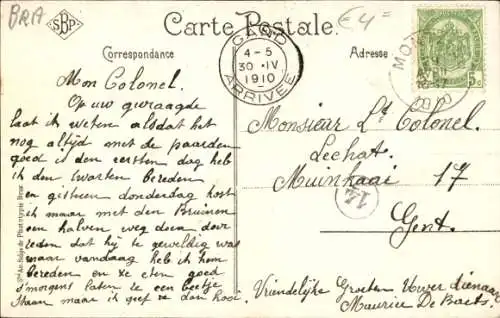 BRA
SBP
Carte Postale.
€ 4=
Correspondance
Adresse
GAND
4-5
30·IV
1910
ARRIVEE
5c
Mon Colonel.
Op uw gevraagde
laat ik weten alsdat het
nog altijd met de paarden
goed is den eersten dag heb
ik den Zwarten bereden
en gisteren donderdag kost
ik maar met den Bruinen
een halven weg doen door
reden dat hij te geweldig was
maar vandaag heb ik hem
bereden en ze eten goed
s'morgens laten ze een beetje
staan maar ik geef ze dan hooi.
Monsieur Lt Colonel.
Lechat.
Muinkaai 17
14
Gent.
Vriendelijke Groeten Uwer dienaar
Maurice De Baets.